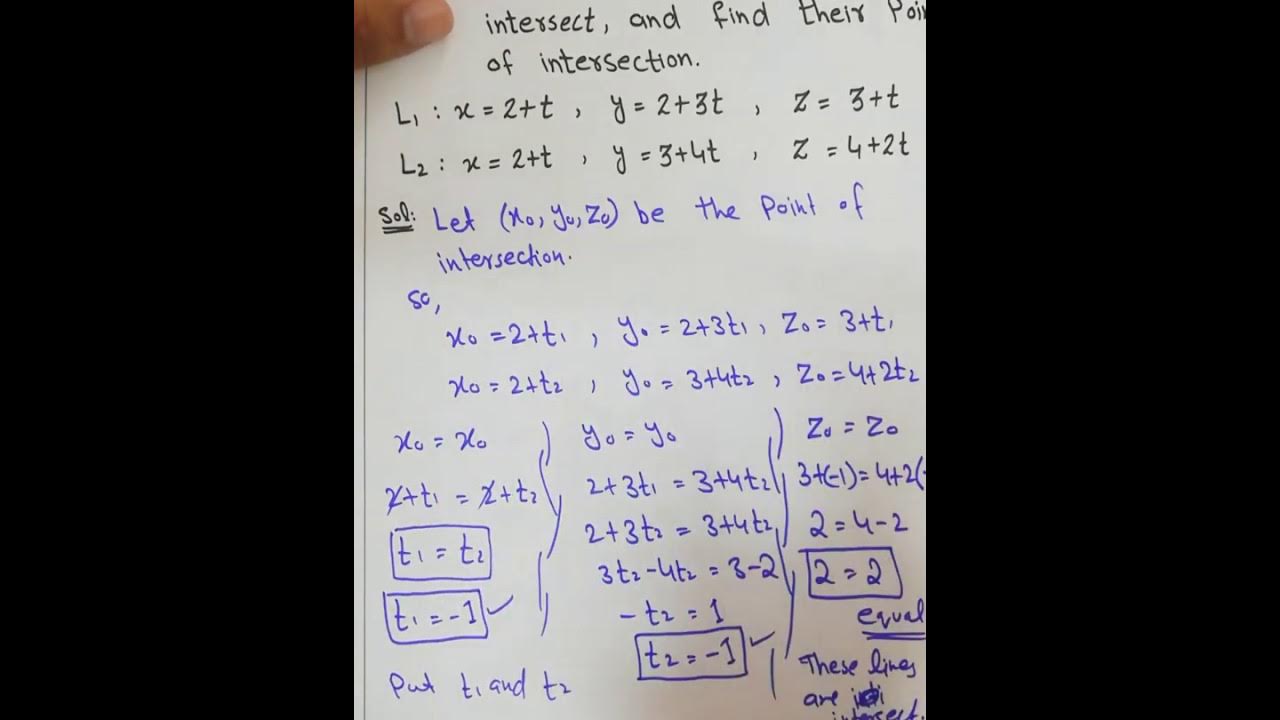 intersect, and find their
of intersection.
L₁ : x = 2+t , y = 2+3t , z = 3+t
L₂ : x = 2+t , y = 3+4t , z = 4+2t
Sol: Let (x₀, y₀, z₀) be the Point of
intersection.
So,
x₀ = 2+t₁ , y₀ = 2+3t₁ , z₀ = 3+t₁
x₀ = 2+t₂ , y₀ = 3+4t₂ , z₀ = 4+2t₂
x₀ = x₀
2+t₁ = 2+t₂
t₁ = t₂
t₁ = -1 ✓
y₀ = y₀
2+3t₁ = 3+4t₂
2+3t₂ = 3+4t₂
3t₂-4t₂ = 3-2
-t₂ = 1
t₂ = -1 ✓
z₀ = z₀
3+(-1) = 4+2(-
2 = 4-2
2 = 2
equal
These lines
are
intersect.
Put t₁ and t₂